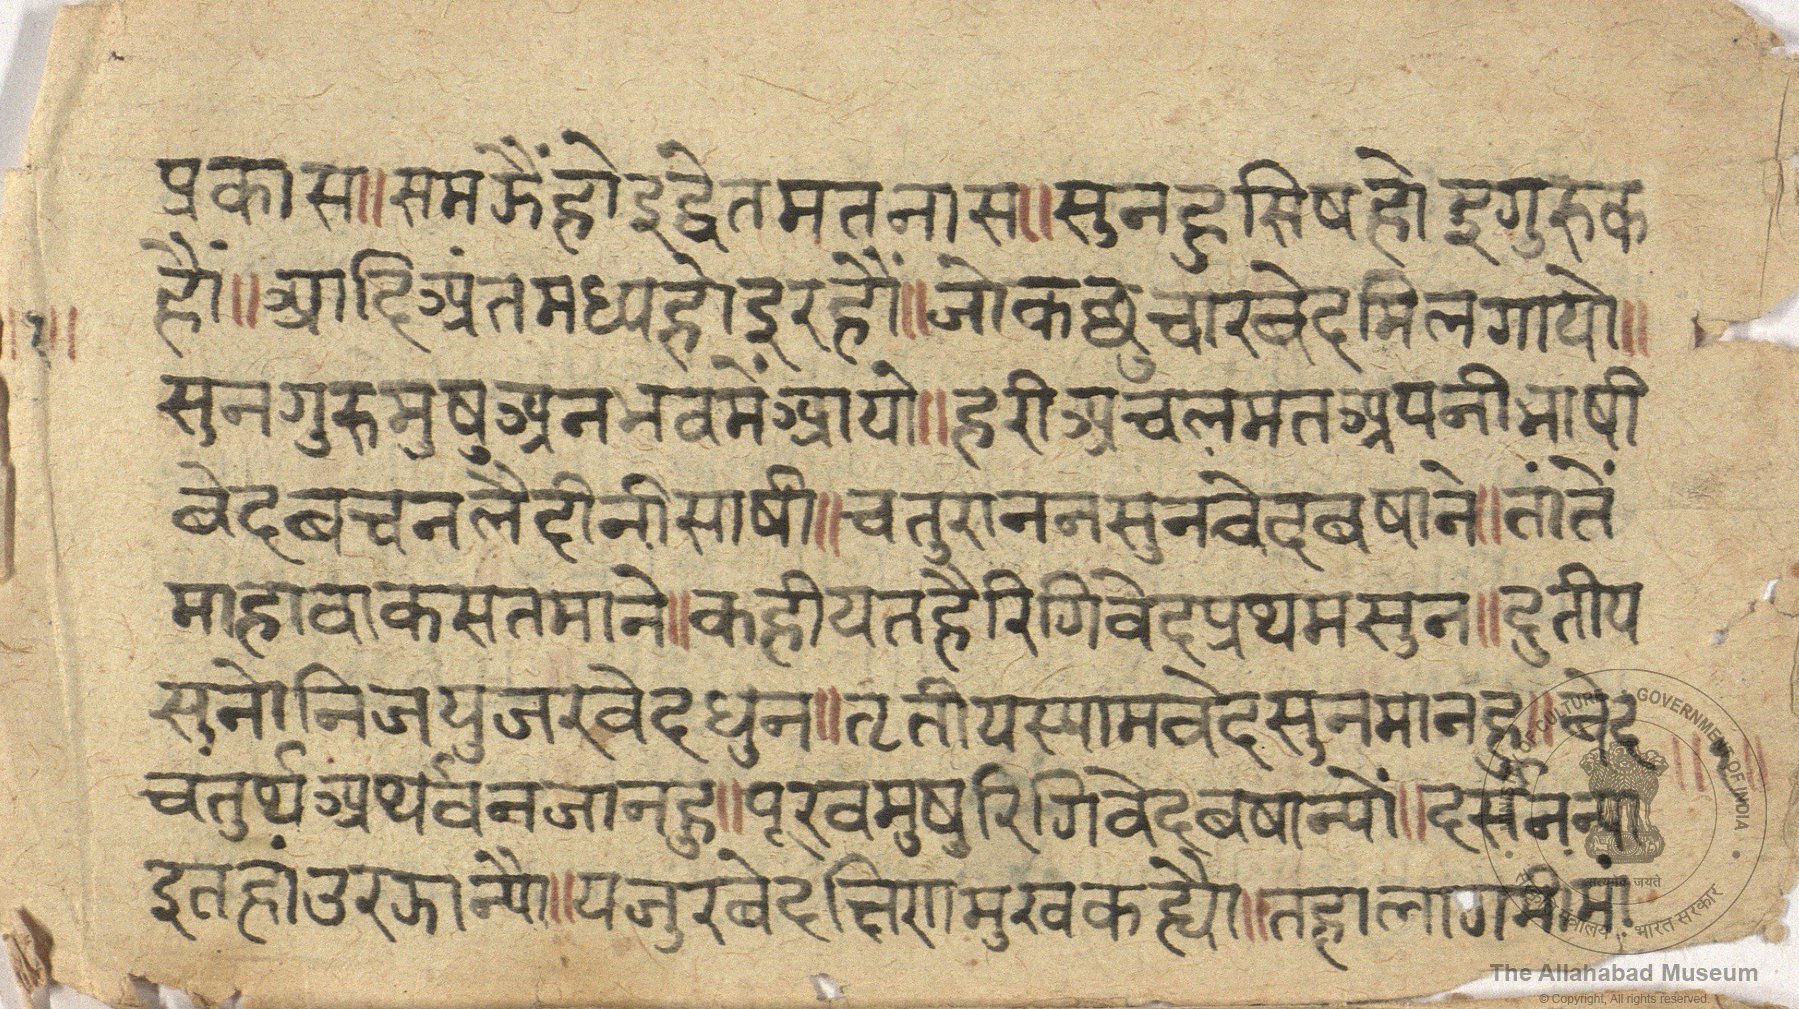 प्रकास॥समझैंहोइद्वैतमतनास॥सुनहुसिषहोइगुरुक
हौं॥आदिअंतमध्यहोइरहौं॥जोकछुचारबेदमिलगायो॥
॥१॥
सुनगुरुमुषुअनभवमेंआयो॥हरीअचलमतअपनीभाषी
बेदबचनलैदीनीसाषी॥चतुराननसुनवेदबषाने॥तांतें
माहावाकसतमाने॥कहीयतहैरिगिवेदप्रथमसुन॥दुतीय
सुनोनिजयुजरवेदधुन॥तृतीयस्यामवेदसुनमानहु॥बेद
चतुर्थअर्थवनजानहु॥पूरवमुषुरिगिवेदबषान्यों॥दर्सनन्या
इतहांउरझान्यौ॥यजुरबेदत्तिरामुखकह्यौ॥तहालागमीमां
MINISTRY OF CULTURE • GOVERNMENT OF INDIA
सत्यमेव जयते
भारत सरकार
The Allahabad Museum
© Copyright, All rights reserved.